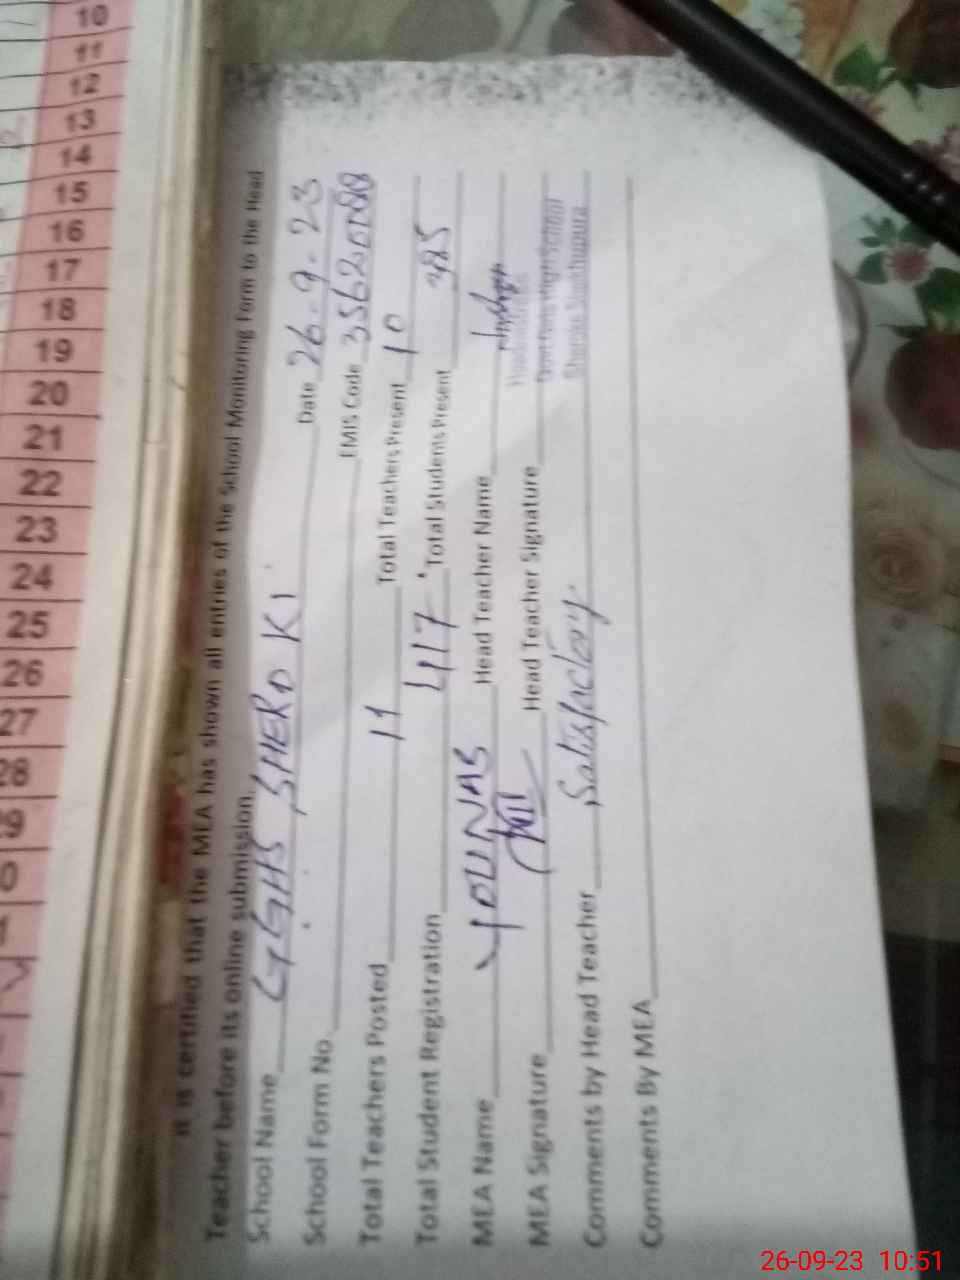 It is certified that the MEA has shown all entries of the School Monitoring Form to the Head
Teacher before its online submission.
School Name GGHS SHERO KI Date 26-9-23
School Form No. EMIS Code 35620088
Total Teachers Posted 11 Total Teachers Present 10
Total Student Registration 417 Total Students Present 385
MEA Name YOUNAS Head Teacher Name
MEA Signature Head Teacher Signature
Headmistress
High School
Sheikhupura
Comments by Head Teacher Satisfactory
Comments By MEA
10
11
12
13
14
15
16
17
18
19
20
21
22
23
24
25
26
27
28
26-09-23 10:51